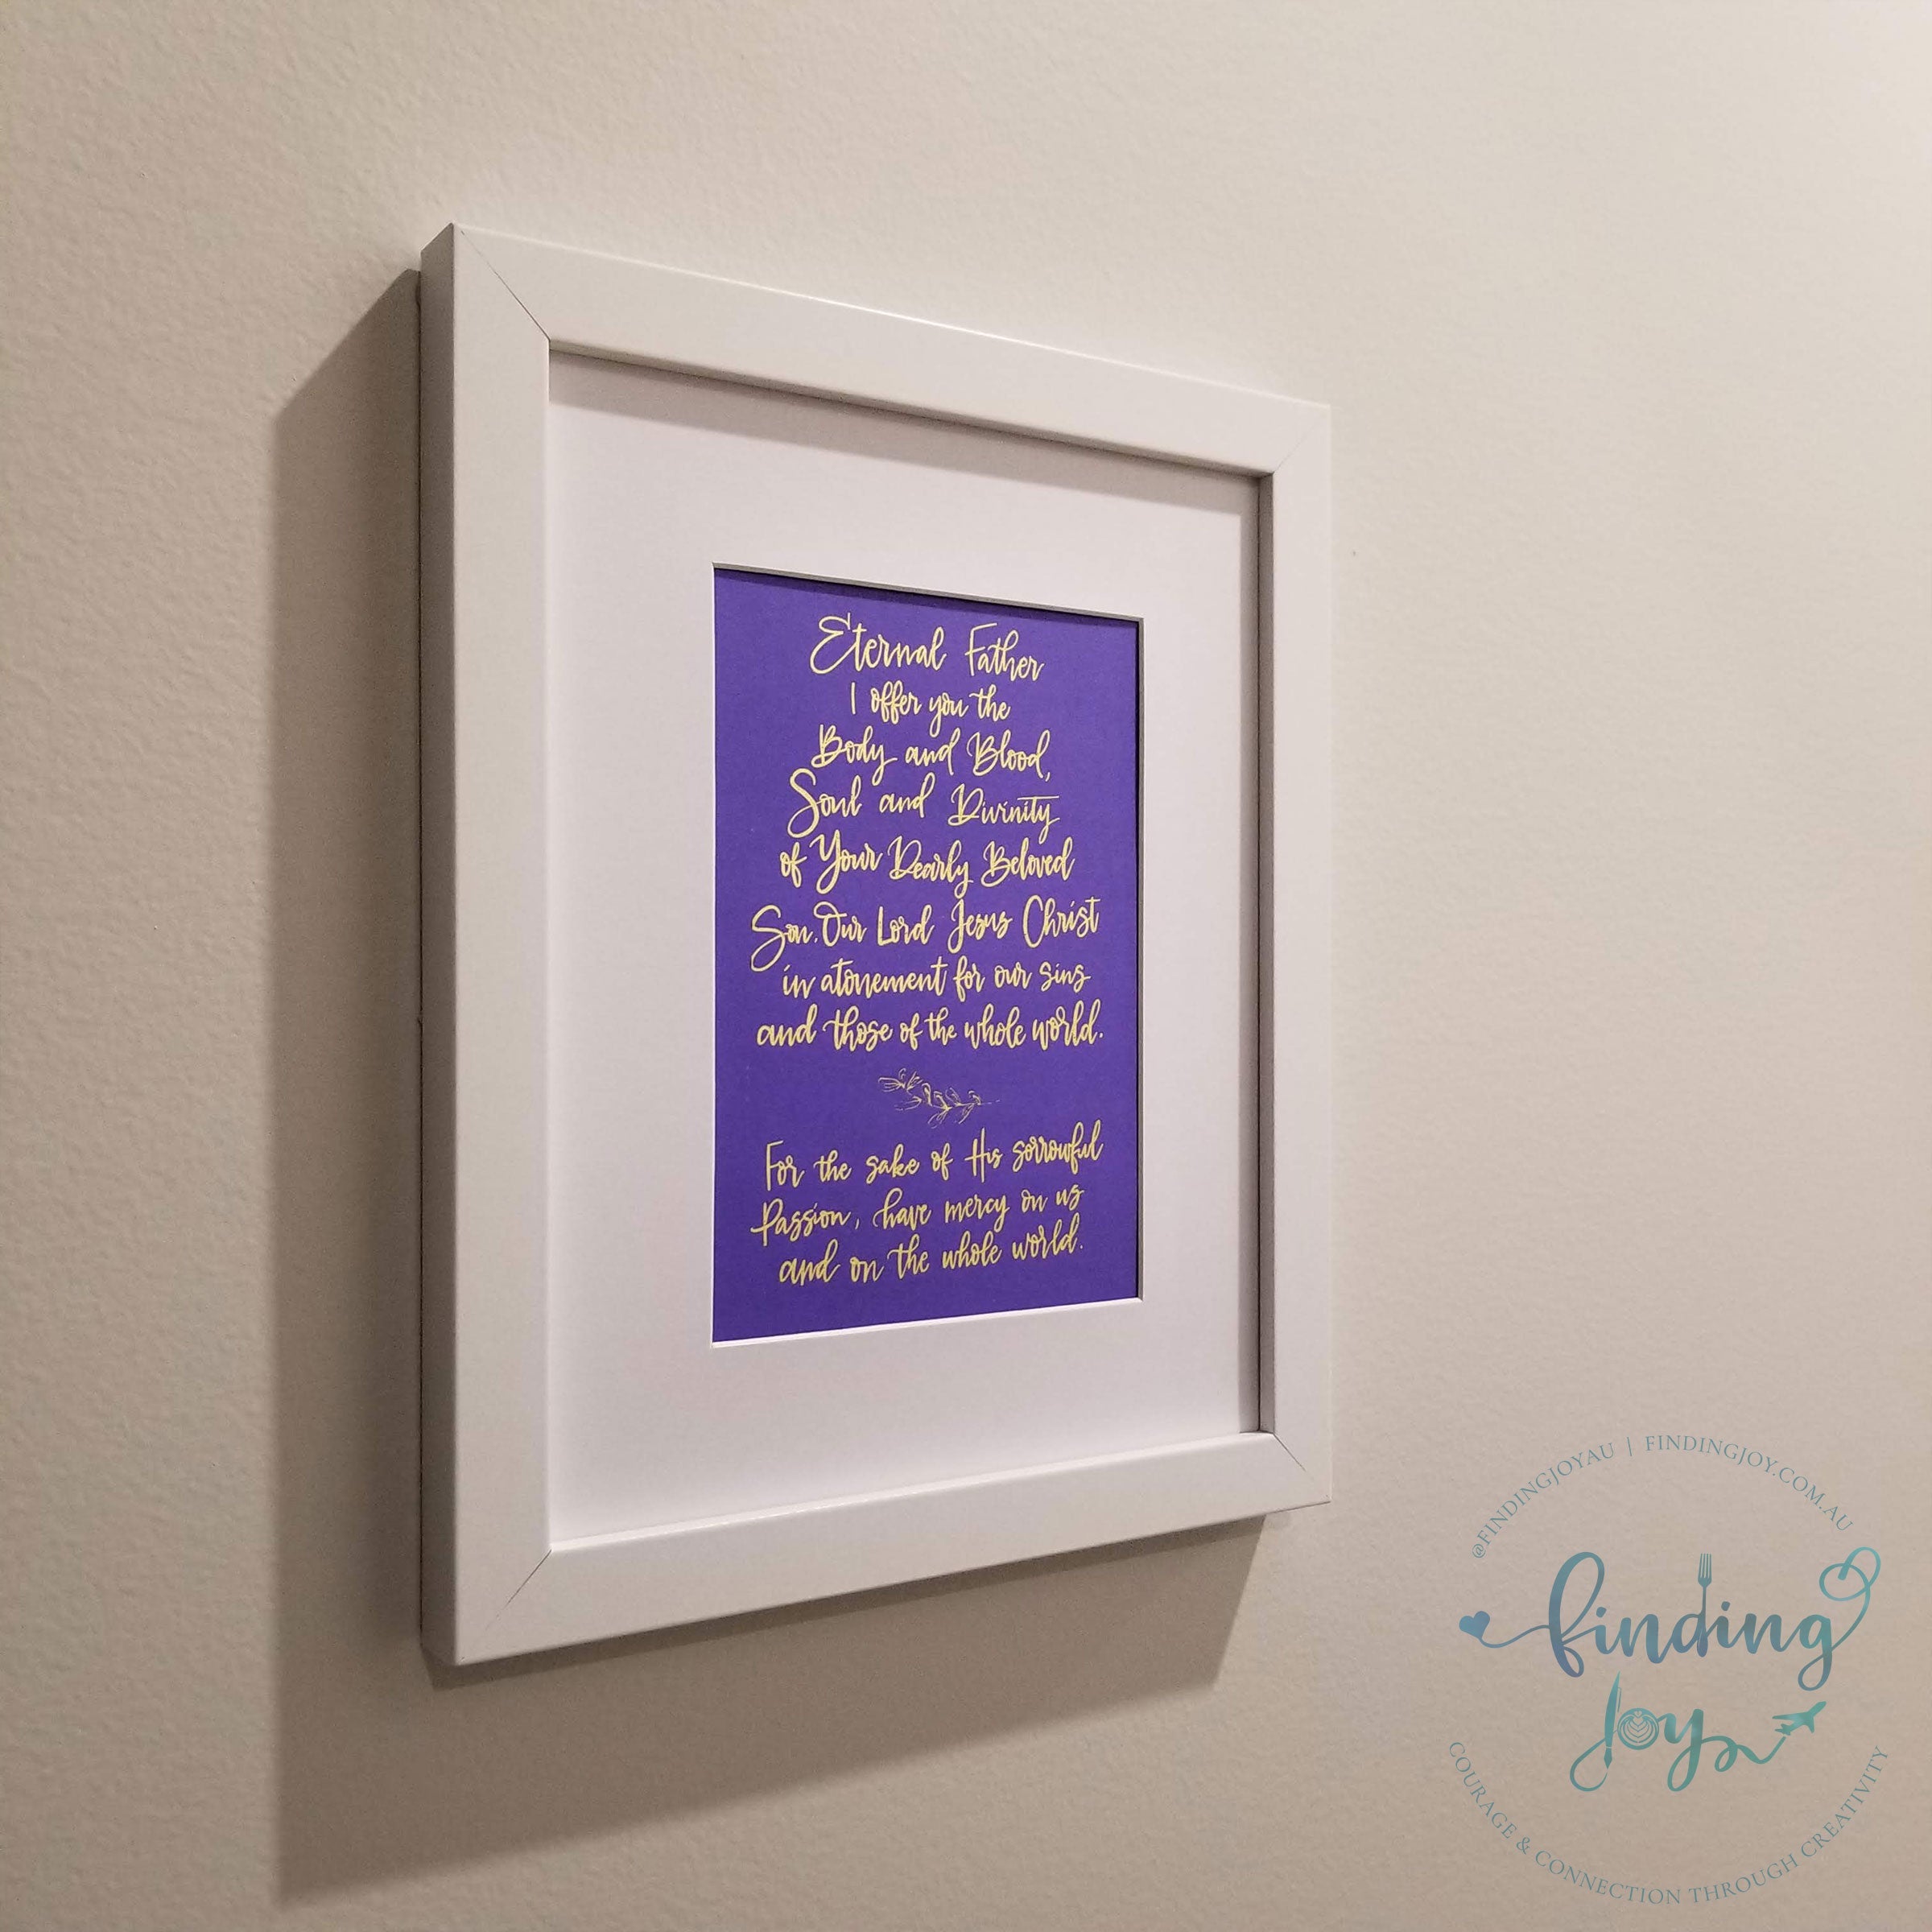 Eternal Father
I offer you the
Body and Blood,
Soul and Divinity
of Your Dearly Beloved
Son, Our Lord Jesus Christ
in atonement for our sins
and those of the whole world.
For the sake of His sorrowful
Passion, have mercy on us
and on the whole world.
@FINDINGJOYAU | FINDINGJOY.COM.AU
finding
Joy
COURAGE & CONNECTION THROUGH CREATIVITY